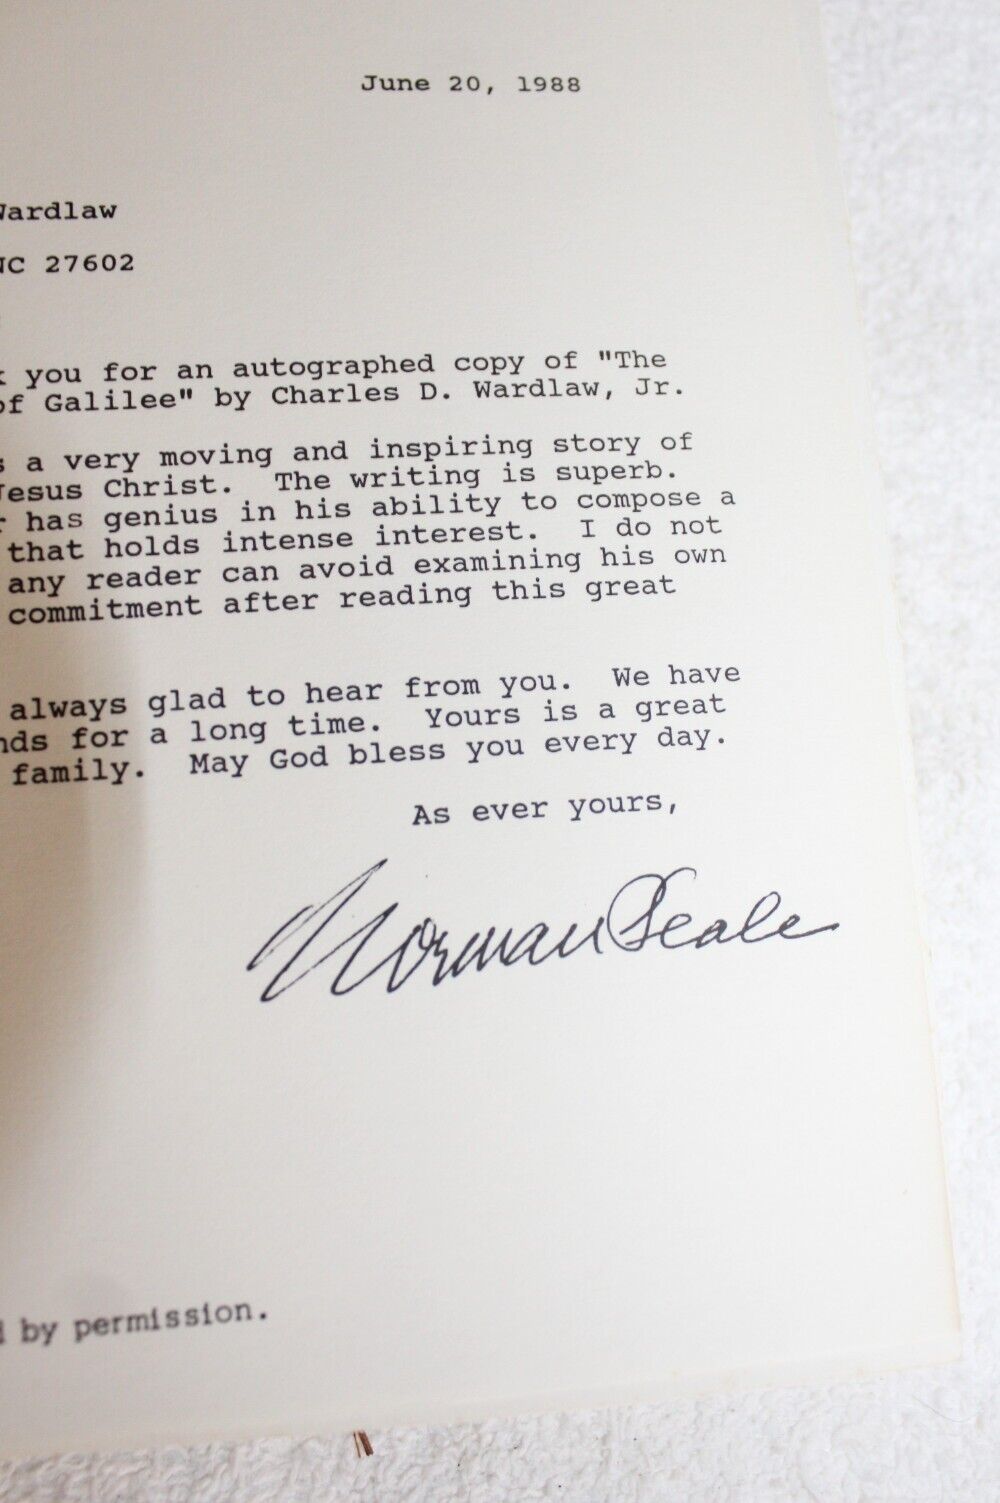 June 20, 1988
Wardlaw
NC 27602
you for an autographed copy of "The
of Galilee" by Charles D. Wardlaw, Jr.
a very moving and inspiring story of
Jesus Christ. The writing is superb.
has genius in his ability to compose a
that holds intense interest. I do not
any reader can avoid examining his own
commitment after reading this great
always glad to hear from you. We have
for a long time. Yours is a great
family. May God bless you every day.
As ever yours,
Norman Peale
by permission.